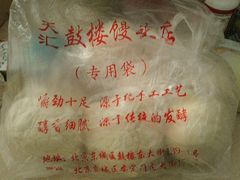 天汇 鼓楼馒头店
(专用袋)
嚼劲十足 源于纯手工工艺
醇香细腻 源于传统的发酵
地址:北京东城区鼓楼东大街
北京东城区